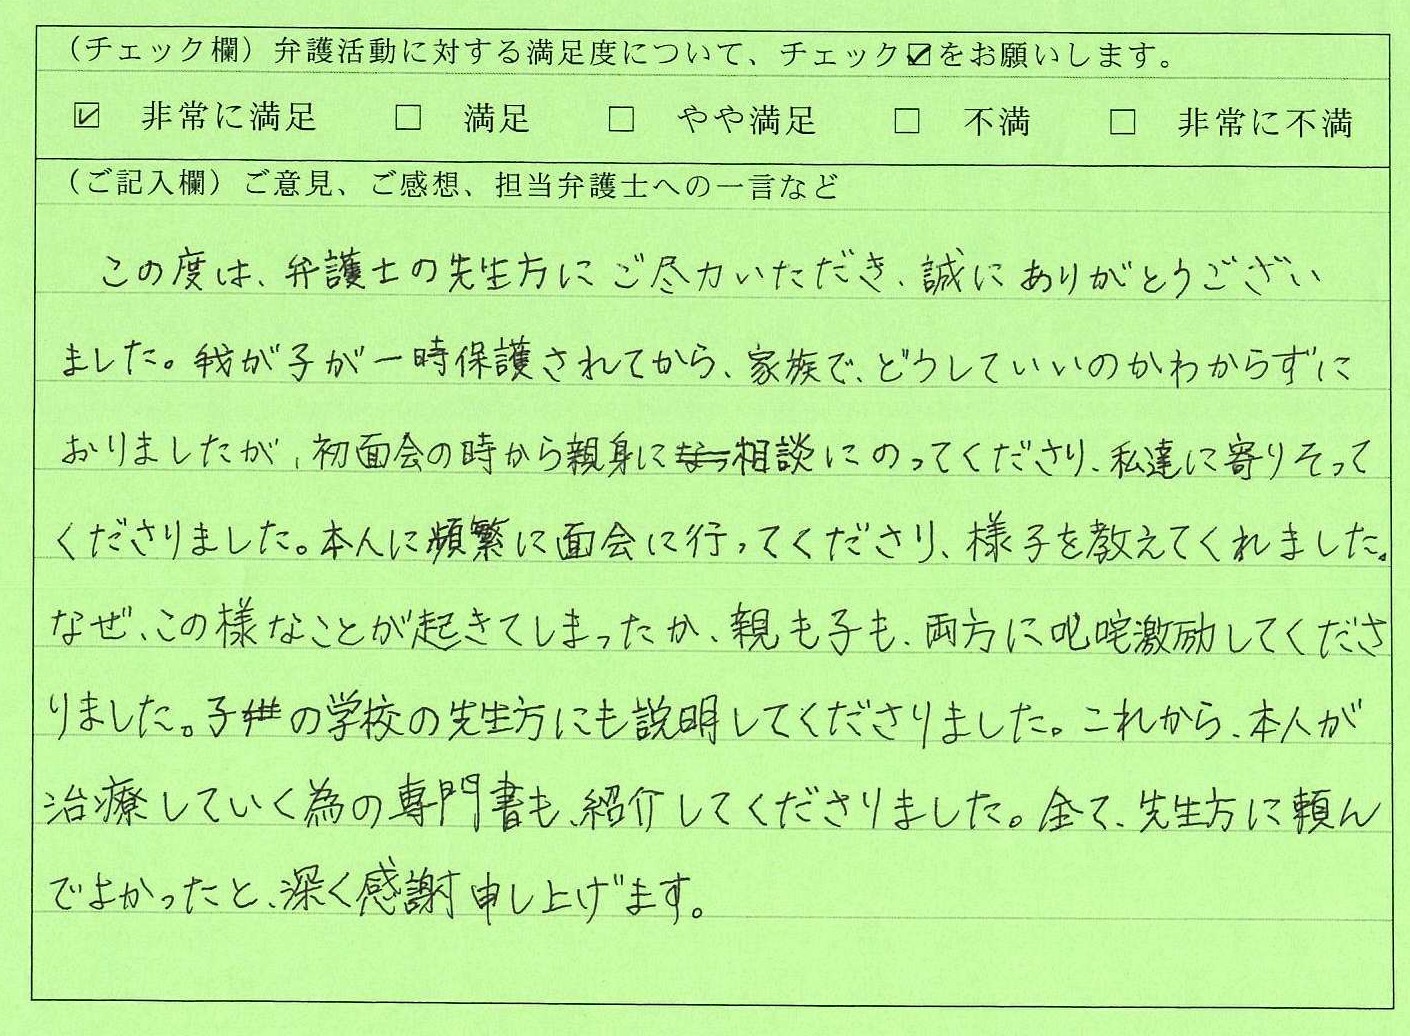 （チェック欄）弁護活動に対する満足度について、チェック☑をお願いします。
☑ 非常に満足 □ 満足 □ やや満足 □ 不満 □ 非常に不満
（ご記入欄）ご意見、ご感想、担当弁護士への一言など
この度は、弁護士の先生方にご尽力いただき、誠にありがとうござい
ました。我が子が一時保護されてから、家族で、どうしていいのかわからずに
おりましたが、初面会の時から親身に相談にのってくださり、私達に寄りそって
くださりました。本人に頻繁に面会に行ってくださり、様子を教えてくれました。
なぜ、この様なことが起きてしまったか、親も子も、両方に叱咤激励してくださ
りました。子の学校の先生方にも説明してくださりました。これから、本人が
治療していく為の専門書も、紹介してくださりました。全て、先生方に頼ん
でよかったと、深く感謝申し上げます。